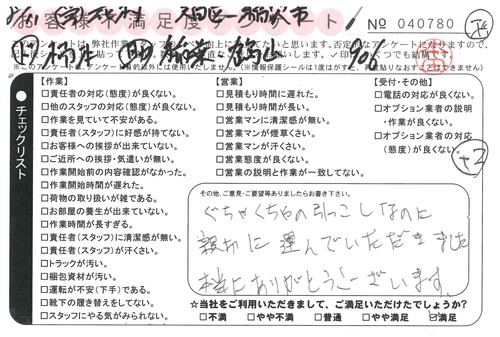 お客様満足度アンケート
№ 040780
チェックリスト
【作業】
□責任者の対応(態度)が良くない。
□他のスタッフの対応(態度)が良くない。
□作業を見ていて不安がある。
□責任者(スタッフ)に好感が持てない。
□お客様への挨拶が出来ていない。
□ご近所への挨拶・気遣いが無い。
□作業開始前の内容確認がなかった。
□作業開始時間が遅れた。
□荷物の取り扱いが雑である。
□お部屋の養生が出来ていない。
□作業時間が長すぎる。
□責任者(スタッフ)に清潔感が無い。
□責任者(スタッフ)が汗くさい。
□トラックが汚い。
□梱包資材が汚い。
□運転が不安(下手)である。
□靴下の履き替えをしてない。
□スタッフにやる気がみられない。
【営業】
□見積もり時間に遅れた。
□見積もり時間が長い。
□営業マンに清潔感が無い。
□営業マンが煙草くさい。
□営業マンが汗くさい。
□営業態度が良くない。
□営業の説明と作業が一致してない。
【受付・その他】
□電話の対応が良くない。
□オプション業者の説明
・作業が良くない。
□オプション業者の対応
(態度)が良くない。
+2
その他、ご意見・ご要望等ありましたらお書き下さい。
ぐちゃぐちゃの引っこしなのに
親切に運んでいただきました
本当にありがとうございます。
☆当社をご利用いただきまして、ご満足いただけてしょうか?
□不満 □やや不満 □普通 □やや満足 □満足